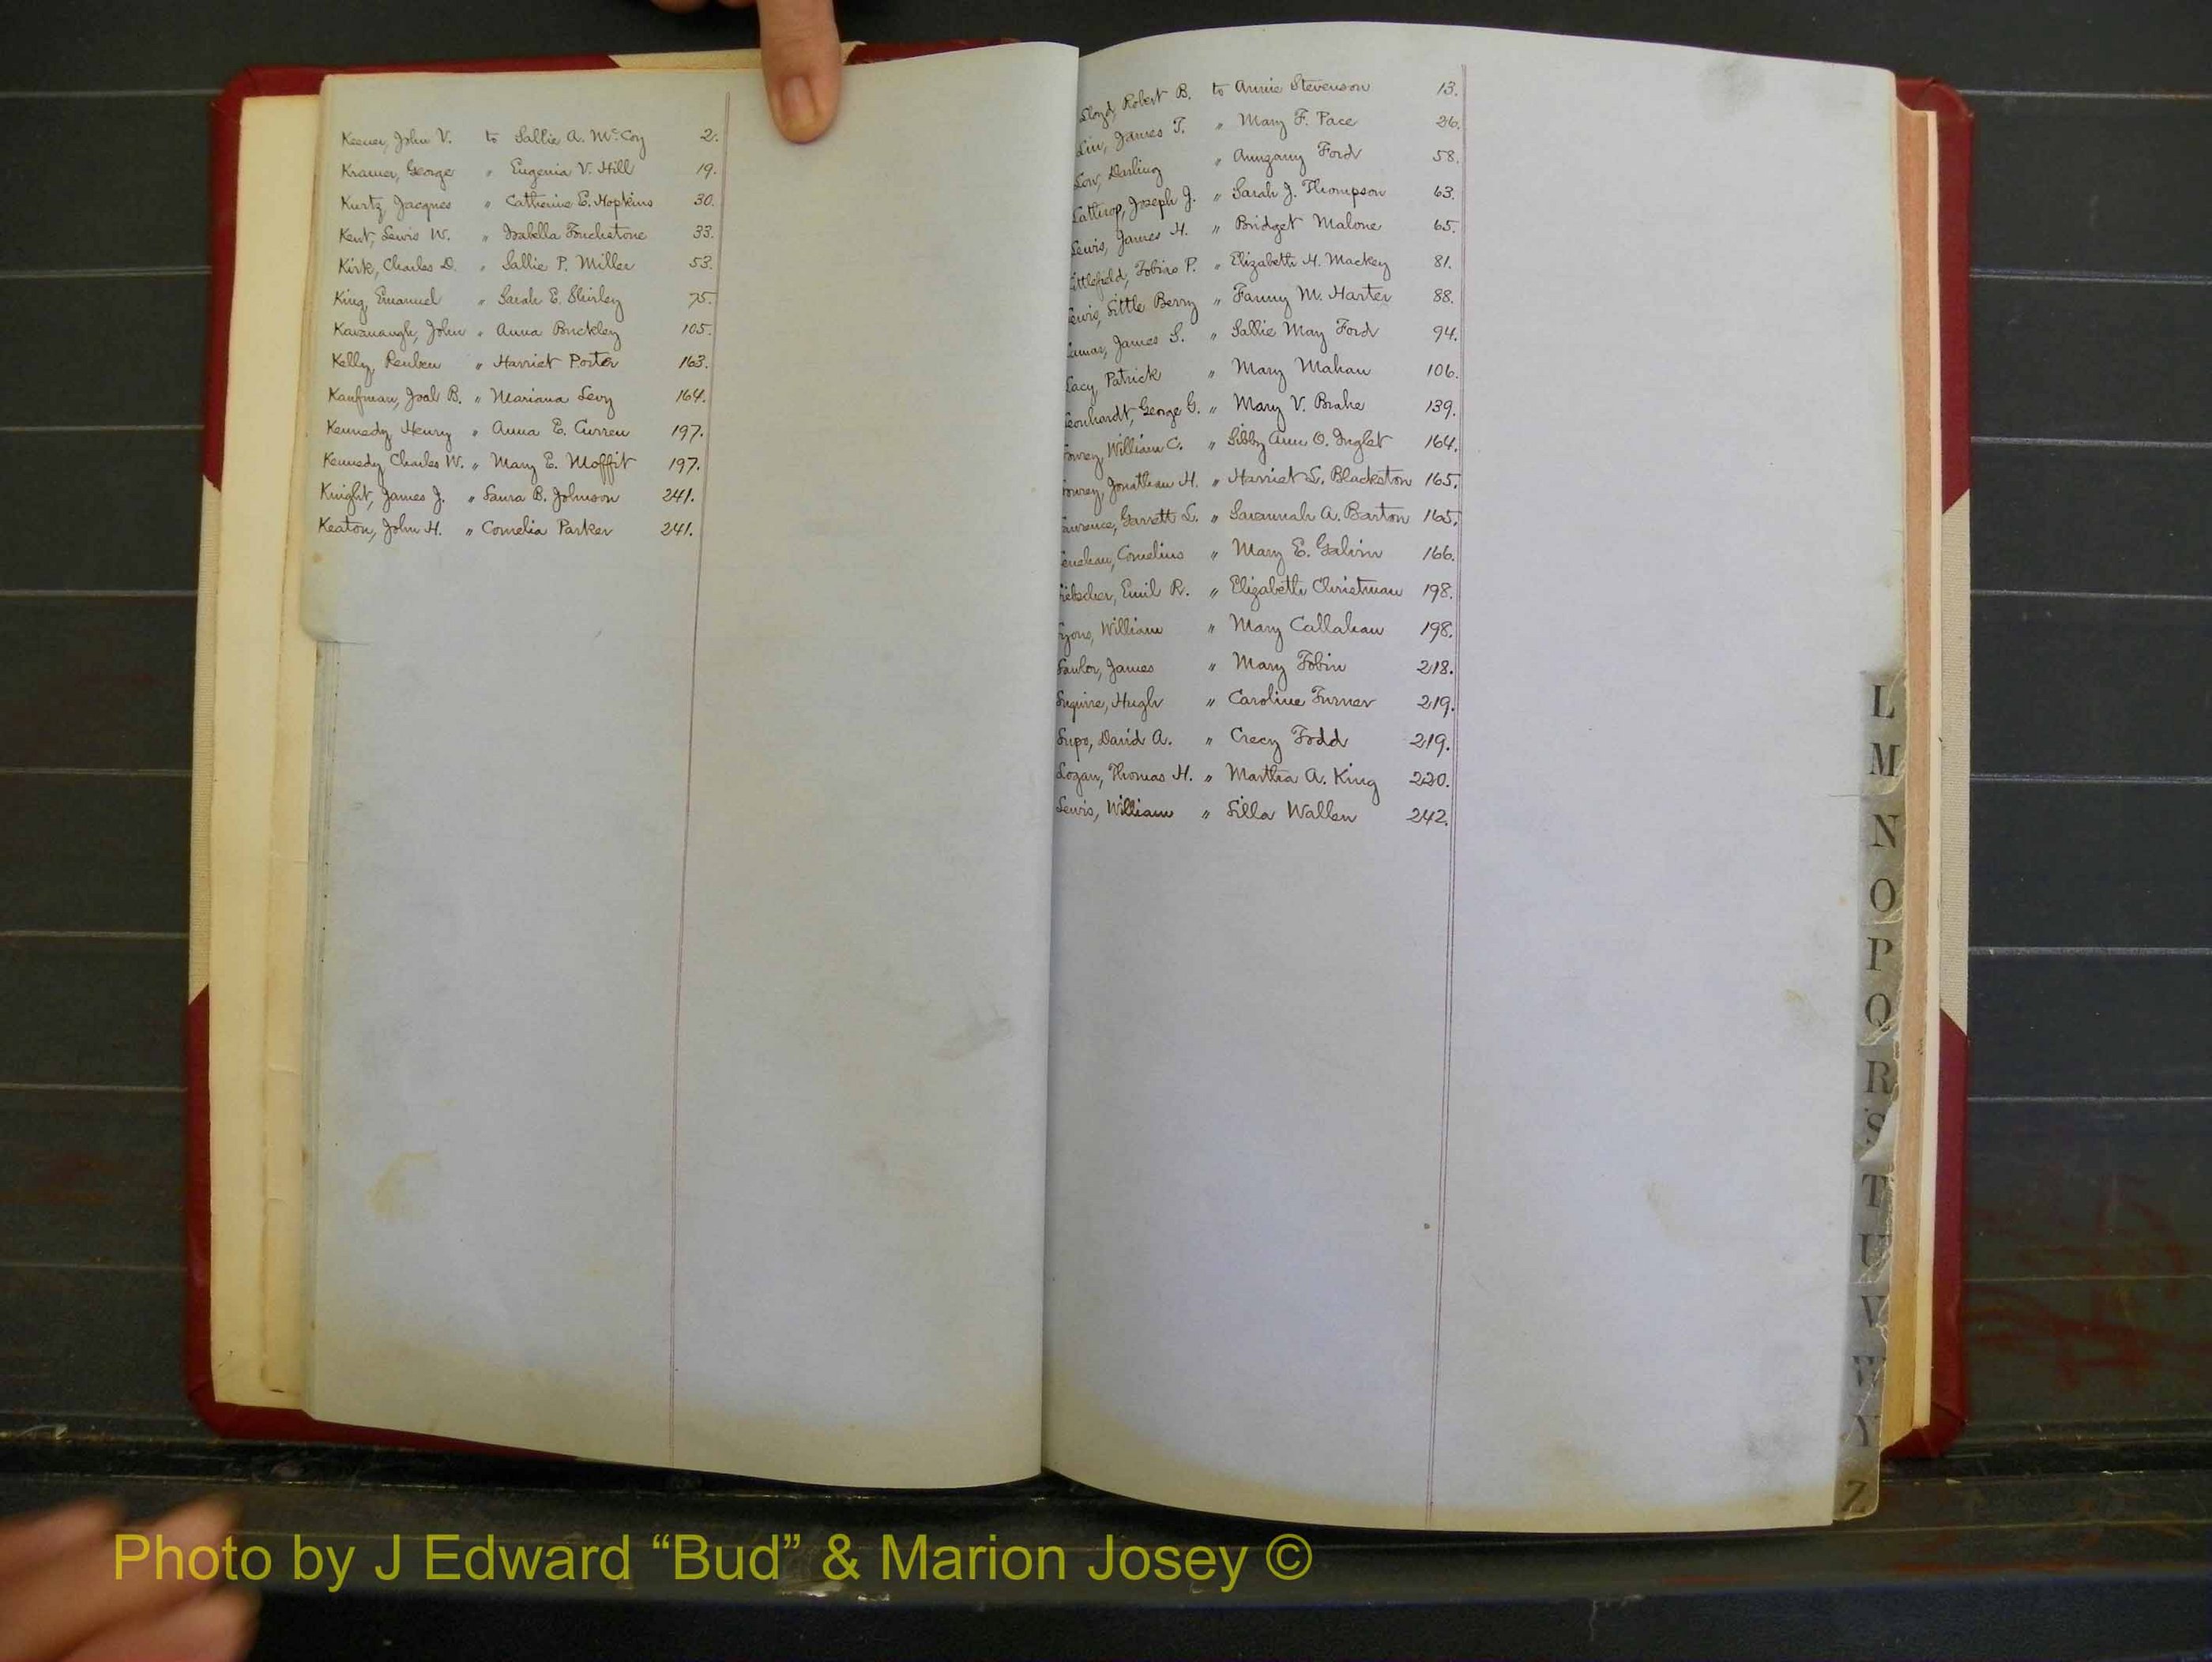 Keener, John V. to Sallie A. McCoy 2.
Kramer, George " Eugenia V. Hill 19.
Kurtz, Jacques " Catherine E. Hopkins 30.
Kent, Lewis W. " Isabella Touchstone 33.
Kirk, Charles D. " Sallie P. Miller 53.
King, Emanuel " Sarah E. Shirley 75.
Kavanaugh, John " Anna Buckley 105.
Kelly, Reuben " Harriet Porter 163.
Kaufman, Joal B. " Mariana Levy 164.
Kennedy, Henry " Anna E. Curren 197.
Kennedy, Charles W. " Mary E. Moffit 197.
Knight, James J. " Laura B. Johnson 241.
Keaton, John H. " Cornelia Parker 241.
Lloyd, Robert B. to Annie Stevenson 13.
Lin, James T. " Mary F. Pace 26.
Low, Darling " Ford 58.
Lathrop, Joseph J. " Sarah J. Thompson 63.
Lewis, James H. " Bridget Malone 65.
Littlefield, Tobias P. " Elizabeth H. Mackey 81.
Lewis, Little Berry " Fanny M. Harter 88.
Lamar, James S. " Sallie May Ford 94.
Lacy, Patrick " Mary Mahan 106.
Leonhardt, George G. " Mary V. Brahe 139.
Lowrey, William C. " Libby Ann O. Inglet 164.
Lowrey, Jonathan H. " Harriet L. Blackston 165.
Lawrence, Garrett L. " Savannah A. Barton 165.
Lenehan, Cornelius " Mary E. Galvin 166.
Emil R. " Elizabeth Christman 198.
Lyons, William " Mary Callahan 198.
Lawlor, James " Mary Tobin 218.
Luquire, Hugh " Caroline Turner 219.
Lupo, David A. " Crecy Todd 219.
Logan, Thomas H. " Martha A. King 220.
Lewis, William " Silla Wallen 242.
L
M
N
O
P
Q
R
S
T
U
V
W
Y
Z
Photo by J Edward “Bud” & Marion Josey ©